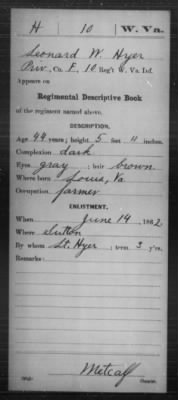 H | 10 | W. Va.
Leonard W. Hyer
Priv., Co. F, 10 Reg't W. Va. Inf.
Appears on
Regimental Descriptive Book
of the regiment named above.
DESCRIPTION.
Age 44 years; height 5 feet 11 inches.
Complexion dark
Eyes gray; hair brown
Where born Va
Occupation farmer
ENLISTMENT.
When June 14, 1862
Where Sutton
By whom Lt. Hyer; term 3 y'rs.
Remarks:
Metcalf
Copyist.